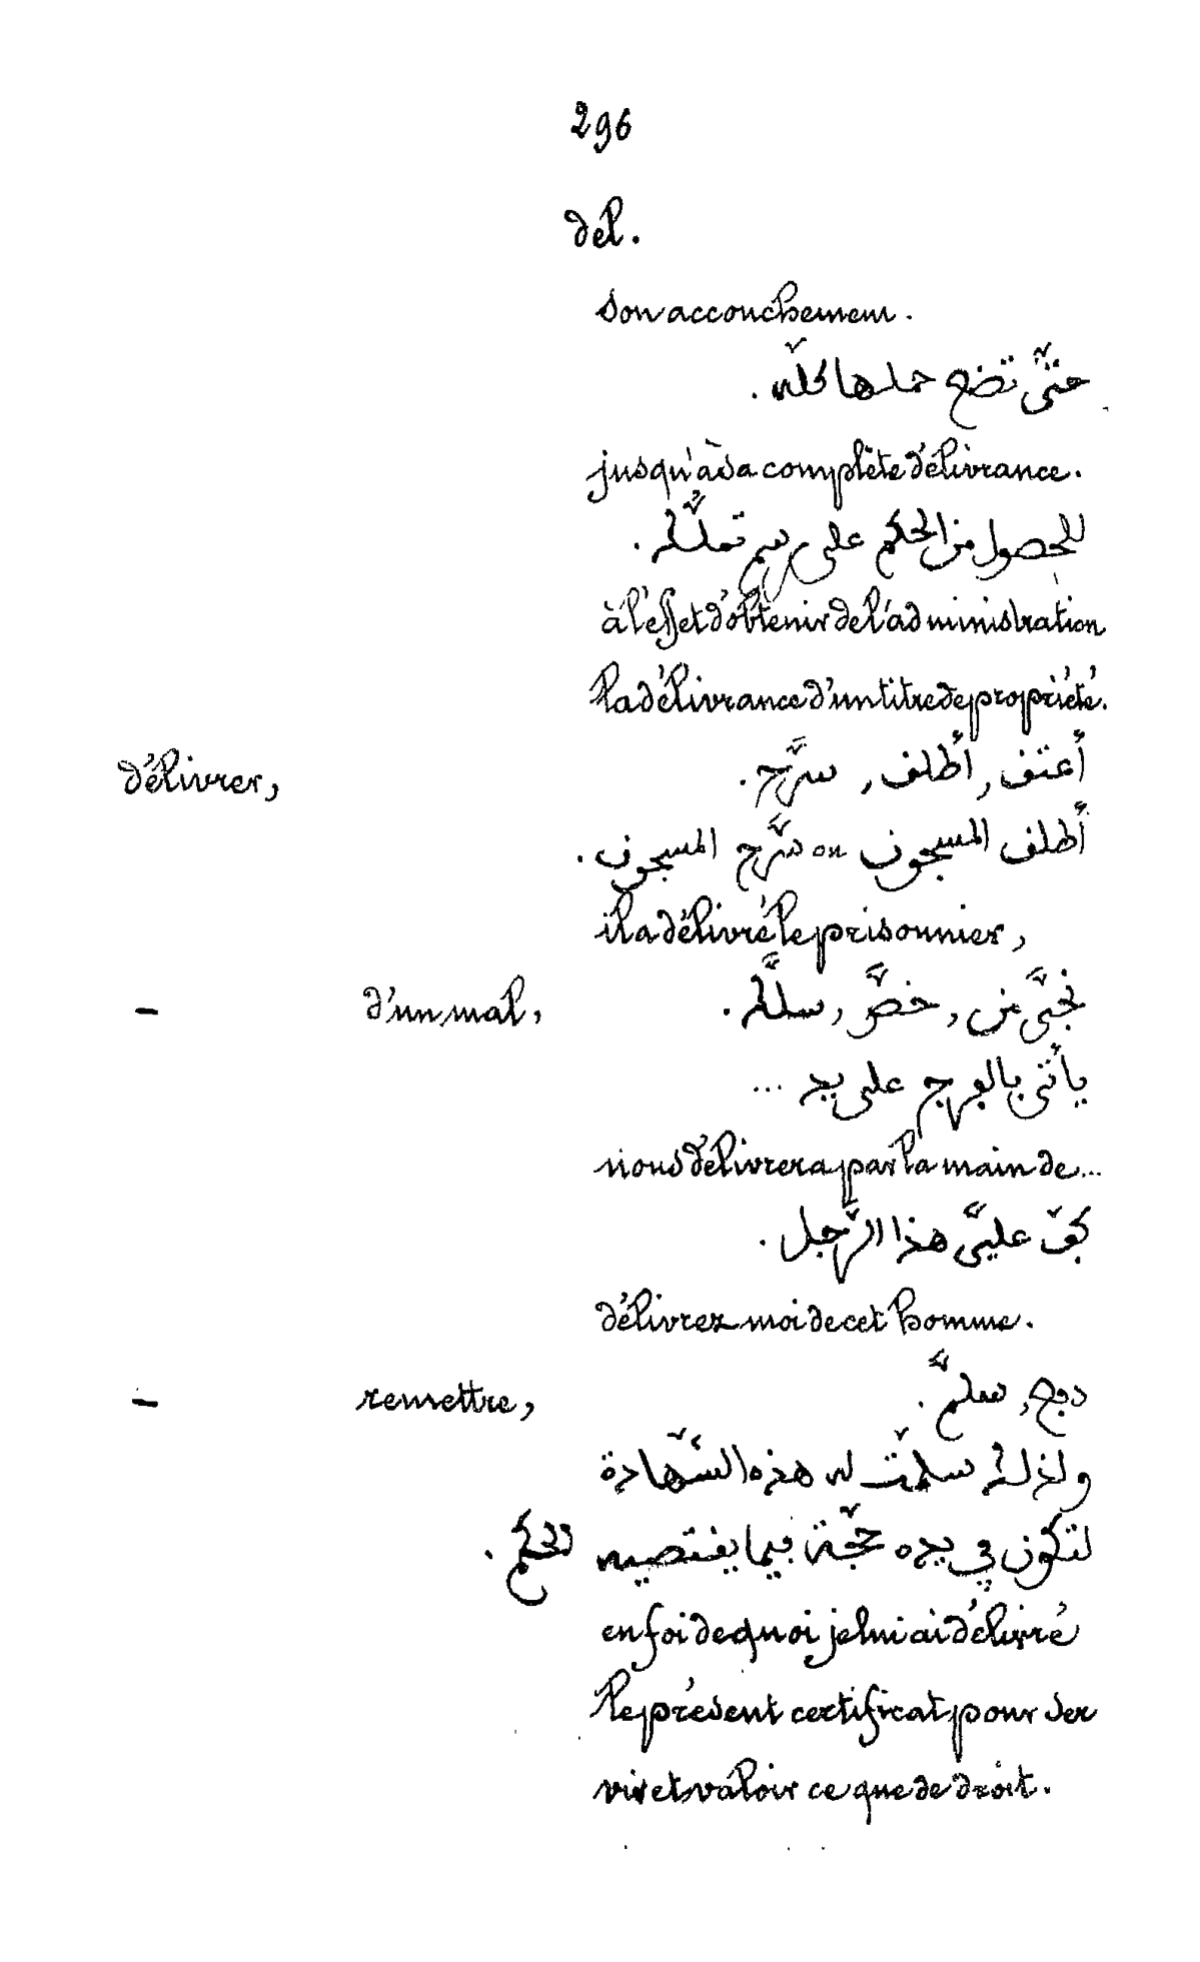 296
dél.
son accouchement.
حتّى تضع حملها كلّه.
jusqu'à sa complète délivrance.
للحصول من الحكم على رسم تملّك.
à l'effet d'obtenir de l'administration
la délivrance d'un titre de propriété.
délivrer, أعتق, أطلق, سرّح.
أطلق المسجون ou سرّح المسجون.
il a délivré le prisonnier,
— d'un mal, نجّى من, سلّك.
يأتي بالفرج على يد ...
nous délivrera par la main de...
كفّ عليّ هذا الرّجل.
délivrez moi de cet homme.
— remettre, دفع, سلّم.
ولذلك سلّمت له هذه الشّهادة
لتكون في يده حجّة فيما يقتضيه الحكم.
en foi de quoi je lui ai délivré
le présent certificat pour ser
vir et valoir ce que de droit.